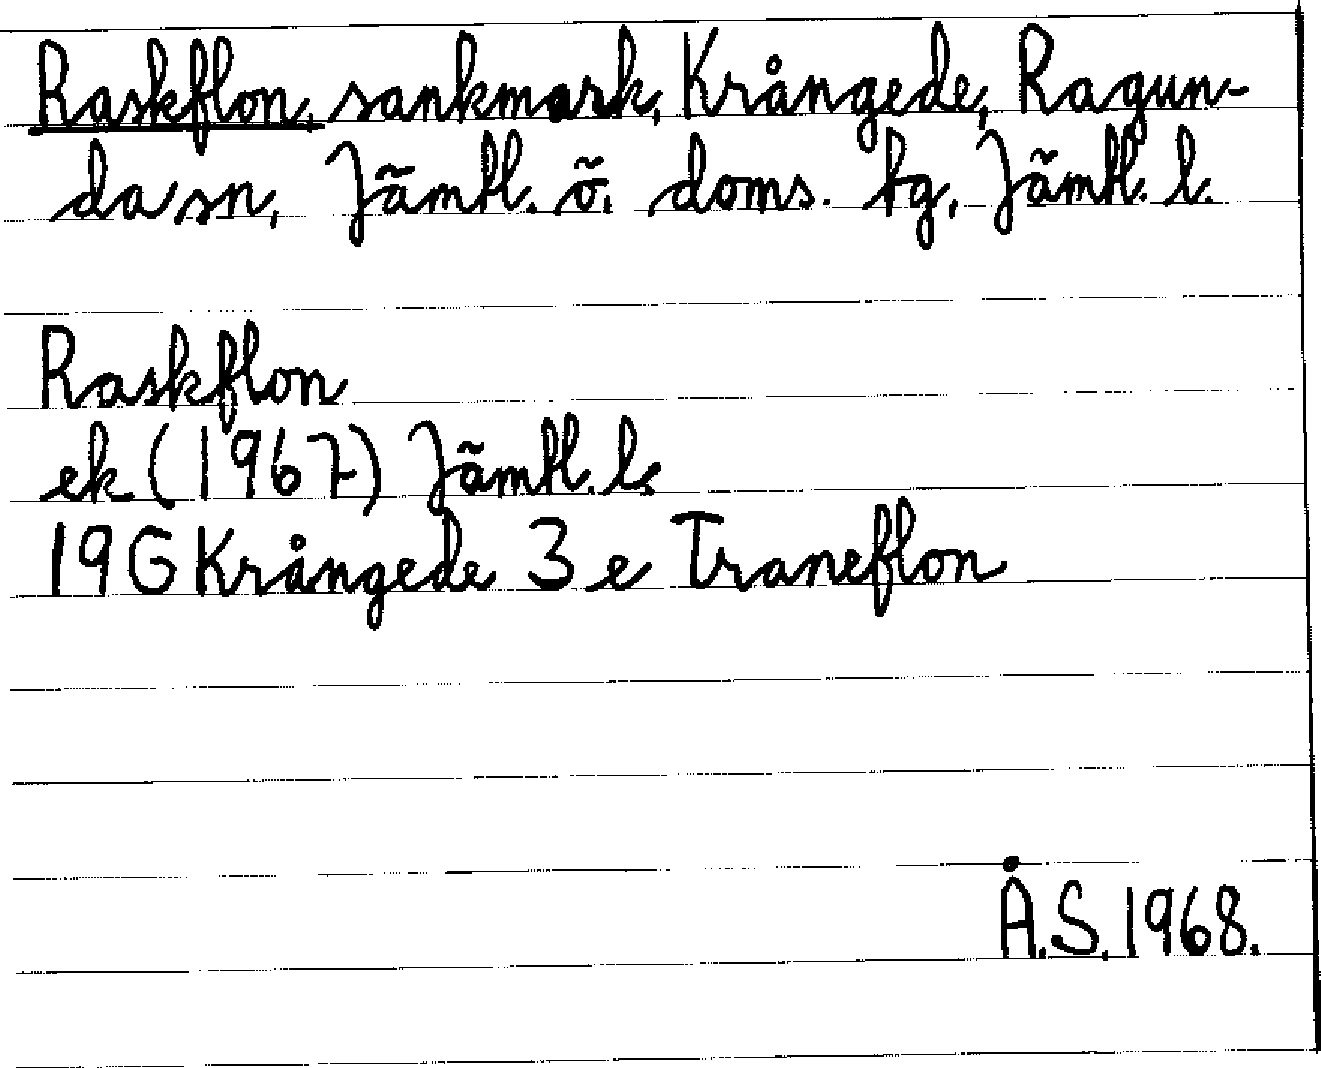 Raskflon, sankmark, Krångede, Ragun-
da sn, Jämtl. ö. doms. tg, Jämtl. l.
Raskflon
ek (1967) Jämtl. l.
19G Krångede 3 e Traneflon
Å.S. 1968.